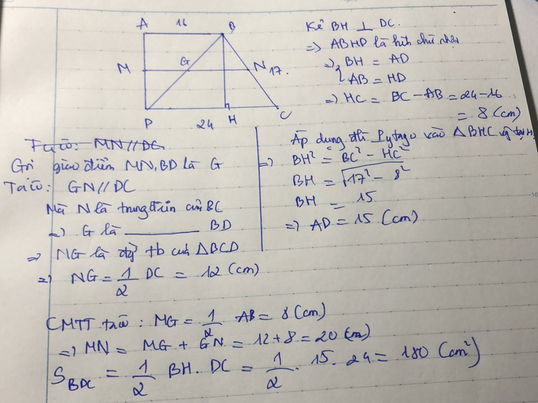 A 16 B
M G N 17.
P 24 H C
Kẻ BH ⊥ DC.
=> ABHD là hình chữ nhật
=> { BH = AD
AB = HD
=> HC = BC - AB = 24 - 16
= 8 (cm)
Áp dụng đlí Pytago vào ΔBHC vg tại H
=> BH² = BC² - HC²
BH = √17² - 8²
BH = 15
=> AD = 15 (cm)
Ta có: MN // DC
Gọi giao điểm MN, BD là G
Ta có: GN // DC
Mà N là trung điểm của BC
=> G là ———— BD
=> NG là đg tb của ΔBCD
=> NG = 1/2 DC = 12 (cm)
CMTT ta có: MG = 1/2 AB = 8 (cm)
=> MN = MG + GN = 12 + 8 = 20 (cm)
S_BDC = 1/2 BH. DC = 1/2 . 15. 24 = 180 (cm²)